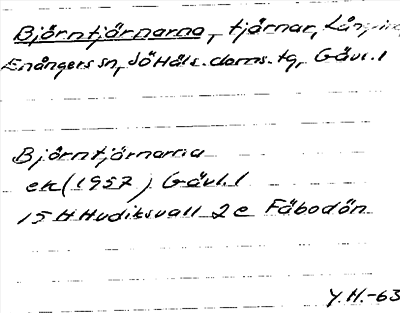 Björntjärnarna, tjärnar,
Enångers sn, SöHäls. doms. tg, Gävl. l
Björntjärnarna
ek (1957) Gävl. l
15 H Hudiksvall 2 e Fäbodön
Y.H.-63